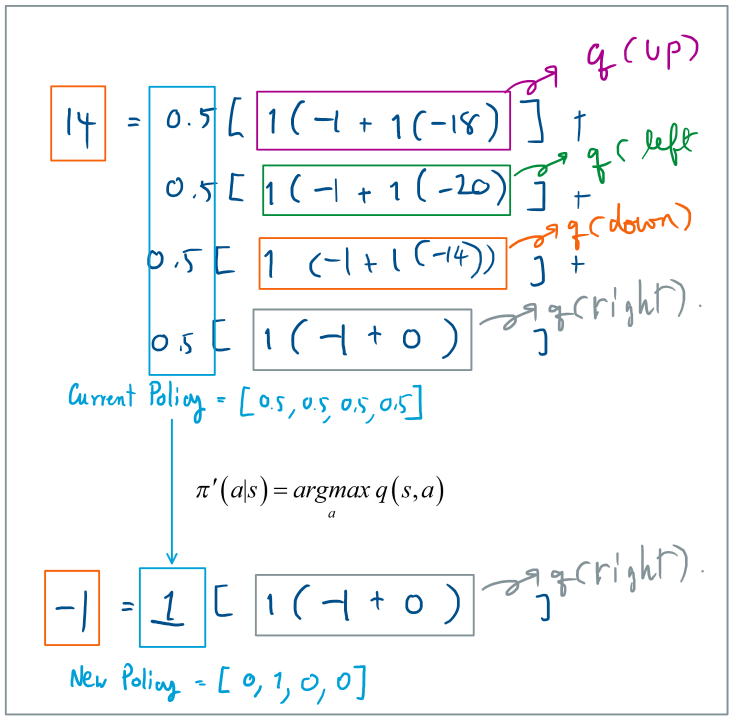 14 = 0.5 [ 1 ( -1 + 1 (-18) ] + q (up)
0.5 [ 1 ( -1 + 1 (-20) ] + q ( left
0.5 [ 1 (-1 + 1 (-14)) ] + q(down)
0.5 [ 1 ( -1 + 0 ) ] q(right).
Current Policy = [ 0.5, 0.5, 0.5, 0.5]
π'(a|s) = argmax q(s,a)
a
-1 = 1 [ 1 ( -1 + 0 ) ] q(right).
New Policy = [ 0, 1, 0, 0 ]